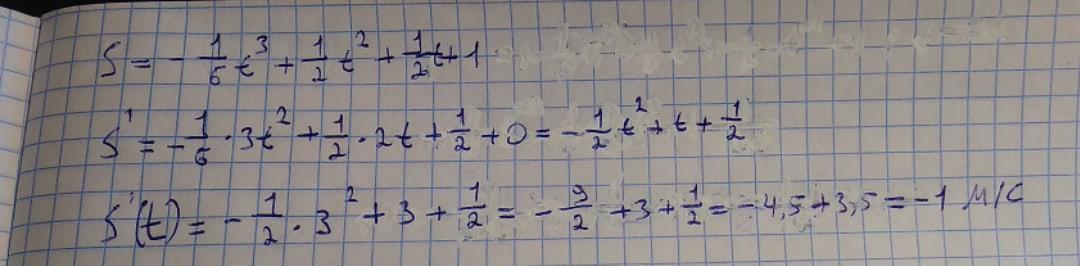 S = -1/6 t³ + 1/2 t² + 1/2 t + 1
S' = -1/6 · 3t² + 1/2 · 2t + 1/2 + 0 = -1/2 t² + t + 1/2
S'(t) = -1/2 · 3² + 3 + 1/2 = -9/2 + 3 + 1/2 = -4,5 + 3,5 = -1 м/с